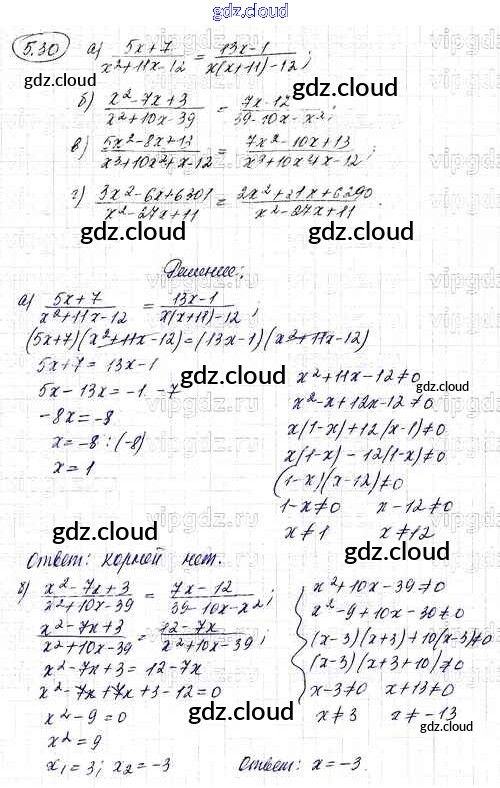 gdz.cloud
5.30 а) (5x+7)/(x²+11x-12) = (13x-1)/(x(x+11)-12);
б) (x²-7x+3)/(x²+10x-39) = (7x-12)/(39-10x-x²);
в) (5x²-8x+13)/(x³+10x²+x-12) = (7x²-10x+13)/(x³+10x4x-12);
г) (3x²-6x+6301)/(x²-27x+11) = (2x²+21x+6290)/(x²-27x+11).
Решение:
а) (5x+7)/(x²+11x-12) = (13x-1)/(x(x+11)-12);
(5x+7)(x²+11x-12)=(13x-1)(x²+11x-12)
5x+7=13x-1
5x-13x=-1-7
-8x=-8
x=-8:(-8)
x=1
x²+11x-12≠0
x²-x+12x-12≠0
x(1-x)+12(x-1)≠0
x(1-x)-12(1-x)≠0
(1-x)(x-12)≠0
1-x≠0 x-12≠0
x≠1 x≠12
Ответ: корней нет.
б) (x²-7x+3)/(x²+10x-39) = (7x-12)/(39-10x-x²);
(x²-7x+3)/(x²+10x-39) = (12-7x)/(x²+10x-39);
x²-7x+3=12-7x
x²-7x+7x+3-12=0
x²-9=0
x²=9
x₁=3; x₂=-3
x²+10x-39≠0
x²-9+10x-30≠0
(x-3)(x+3)+10(x-3)≠0
(x-3)(x+3+10)≠0
x-3≠0 x+13≠0
x≠3 x≠-13
Ответ: x=-3.